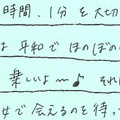 時間、1分を大切
は平和でほのぼの
楽しいよ〜♪ それ
で会えるのを待っ